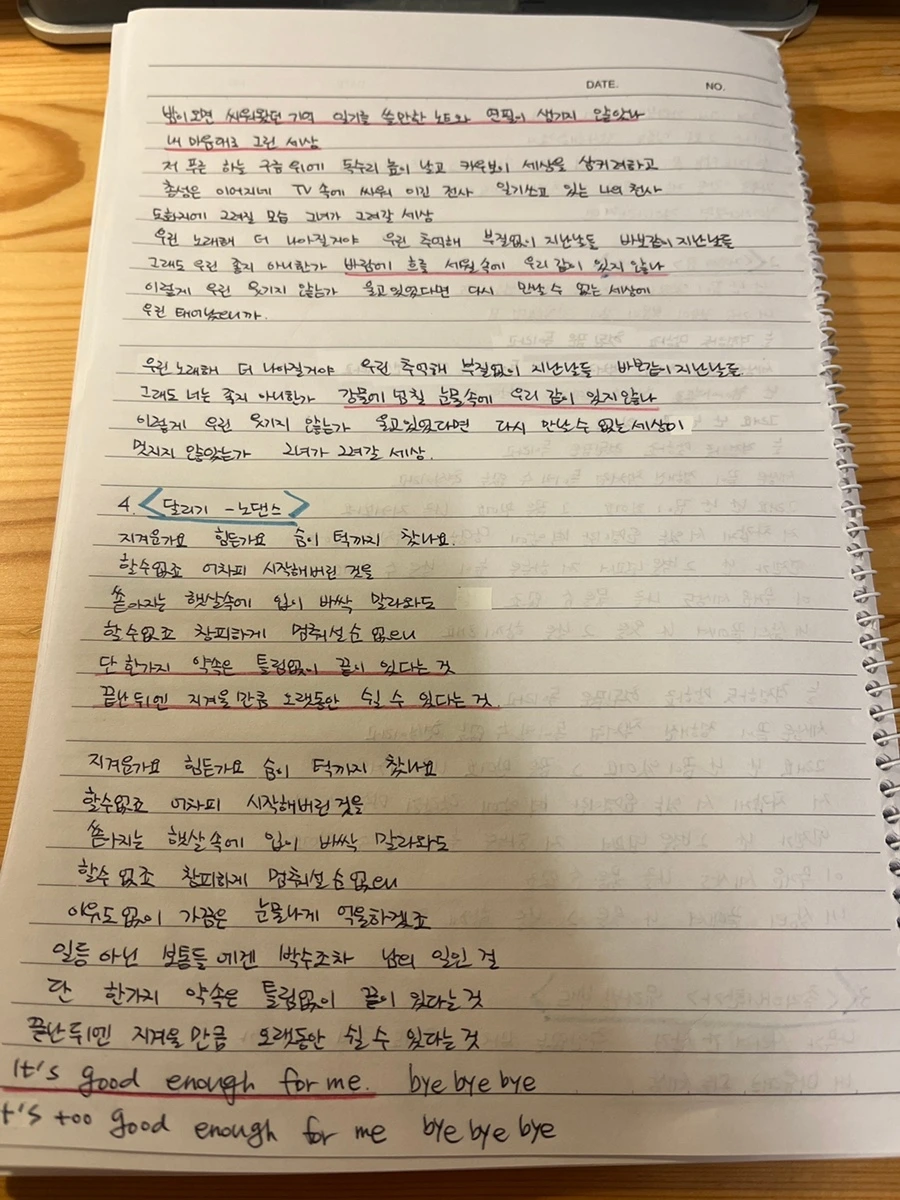 DATE. NO.
밤이 오면 싸워왔던 기억 일기를 쓸만한 노트와 연필이 생기지 않았나
내 마음대로 그린 세상
저 푸른 하늘 구름 위에 독수리 높이 날고 카우보이 세상을 삼키려하고
총성은 이어지네 TV 속에 싸워 이긴 전사 일기쓰고 있는 나의 천사
도화지에 그려질 모습 그녀가 그려갈 세상
우린 노래해 더 나아질거야 우린 추억해 부질없이 지난날들 바보같이 지난날들
그래도 우린 좋지 아니한가 바람에 흐를 세월 속에 우리 같이 있지 않나
이렇게 우린 웃기지 않는가 울고 있었다면 다시 만날 수 없는 세상에
우린 태어났으니까.
우린 노래해 더 나아질거야 우린 추억해 부질없이 지난날들 바보같이 지난날들.
그래도 너는 좋지 아니한가 강물에 넘칠 눈물 속에 우리 같이 있지 않나
이렇게 우린 웃기지 않는가 울고 있었다면 다시 만날 수 없는 세상이
멋지지 않았는가 그녀가 그려갈 세상.
4. <달리기 - 노댄스>
지겨운가요 힘든가요 숨이 턱까지 찼나요.
할수없죠 어차피 시작해버린 것을
쏟아지는 햇살속에 입이 바싹 말라와도
할 수 없죠 창피하게 멈춰설 순 없으니
단 한가지 약속은 틀림없이 끝이 있다는 것
끝난 뒤엔 지겨울 만큼 오랫동안 쉴 수 있다는 것.
지겨운가요 힘든가요 숨이 턱까지 찼나요
할수없죠 어차피 시작해버린 것을
쏟아지는 햇살 속에 입이 바싹 말라와도
할수 없죠 창피하게 멈춰설 순 없으니
아무도 없이 가끔은 눈물나게 억울하겠죠
일등 아닌 보통들 에겐 박수조차 남의 일인 걸
단 한가지 약속은 틀림없이 끝이 있다는 것
끝난 뒤엔 지겨울 만큼 오랫동안 쉴 수 있다는 것
It's good enough for me. bye bye bye
t's too good enough for me bye bye bye